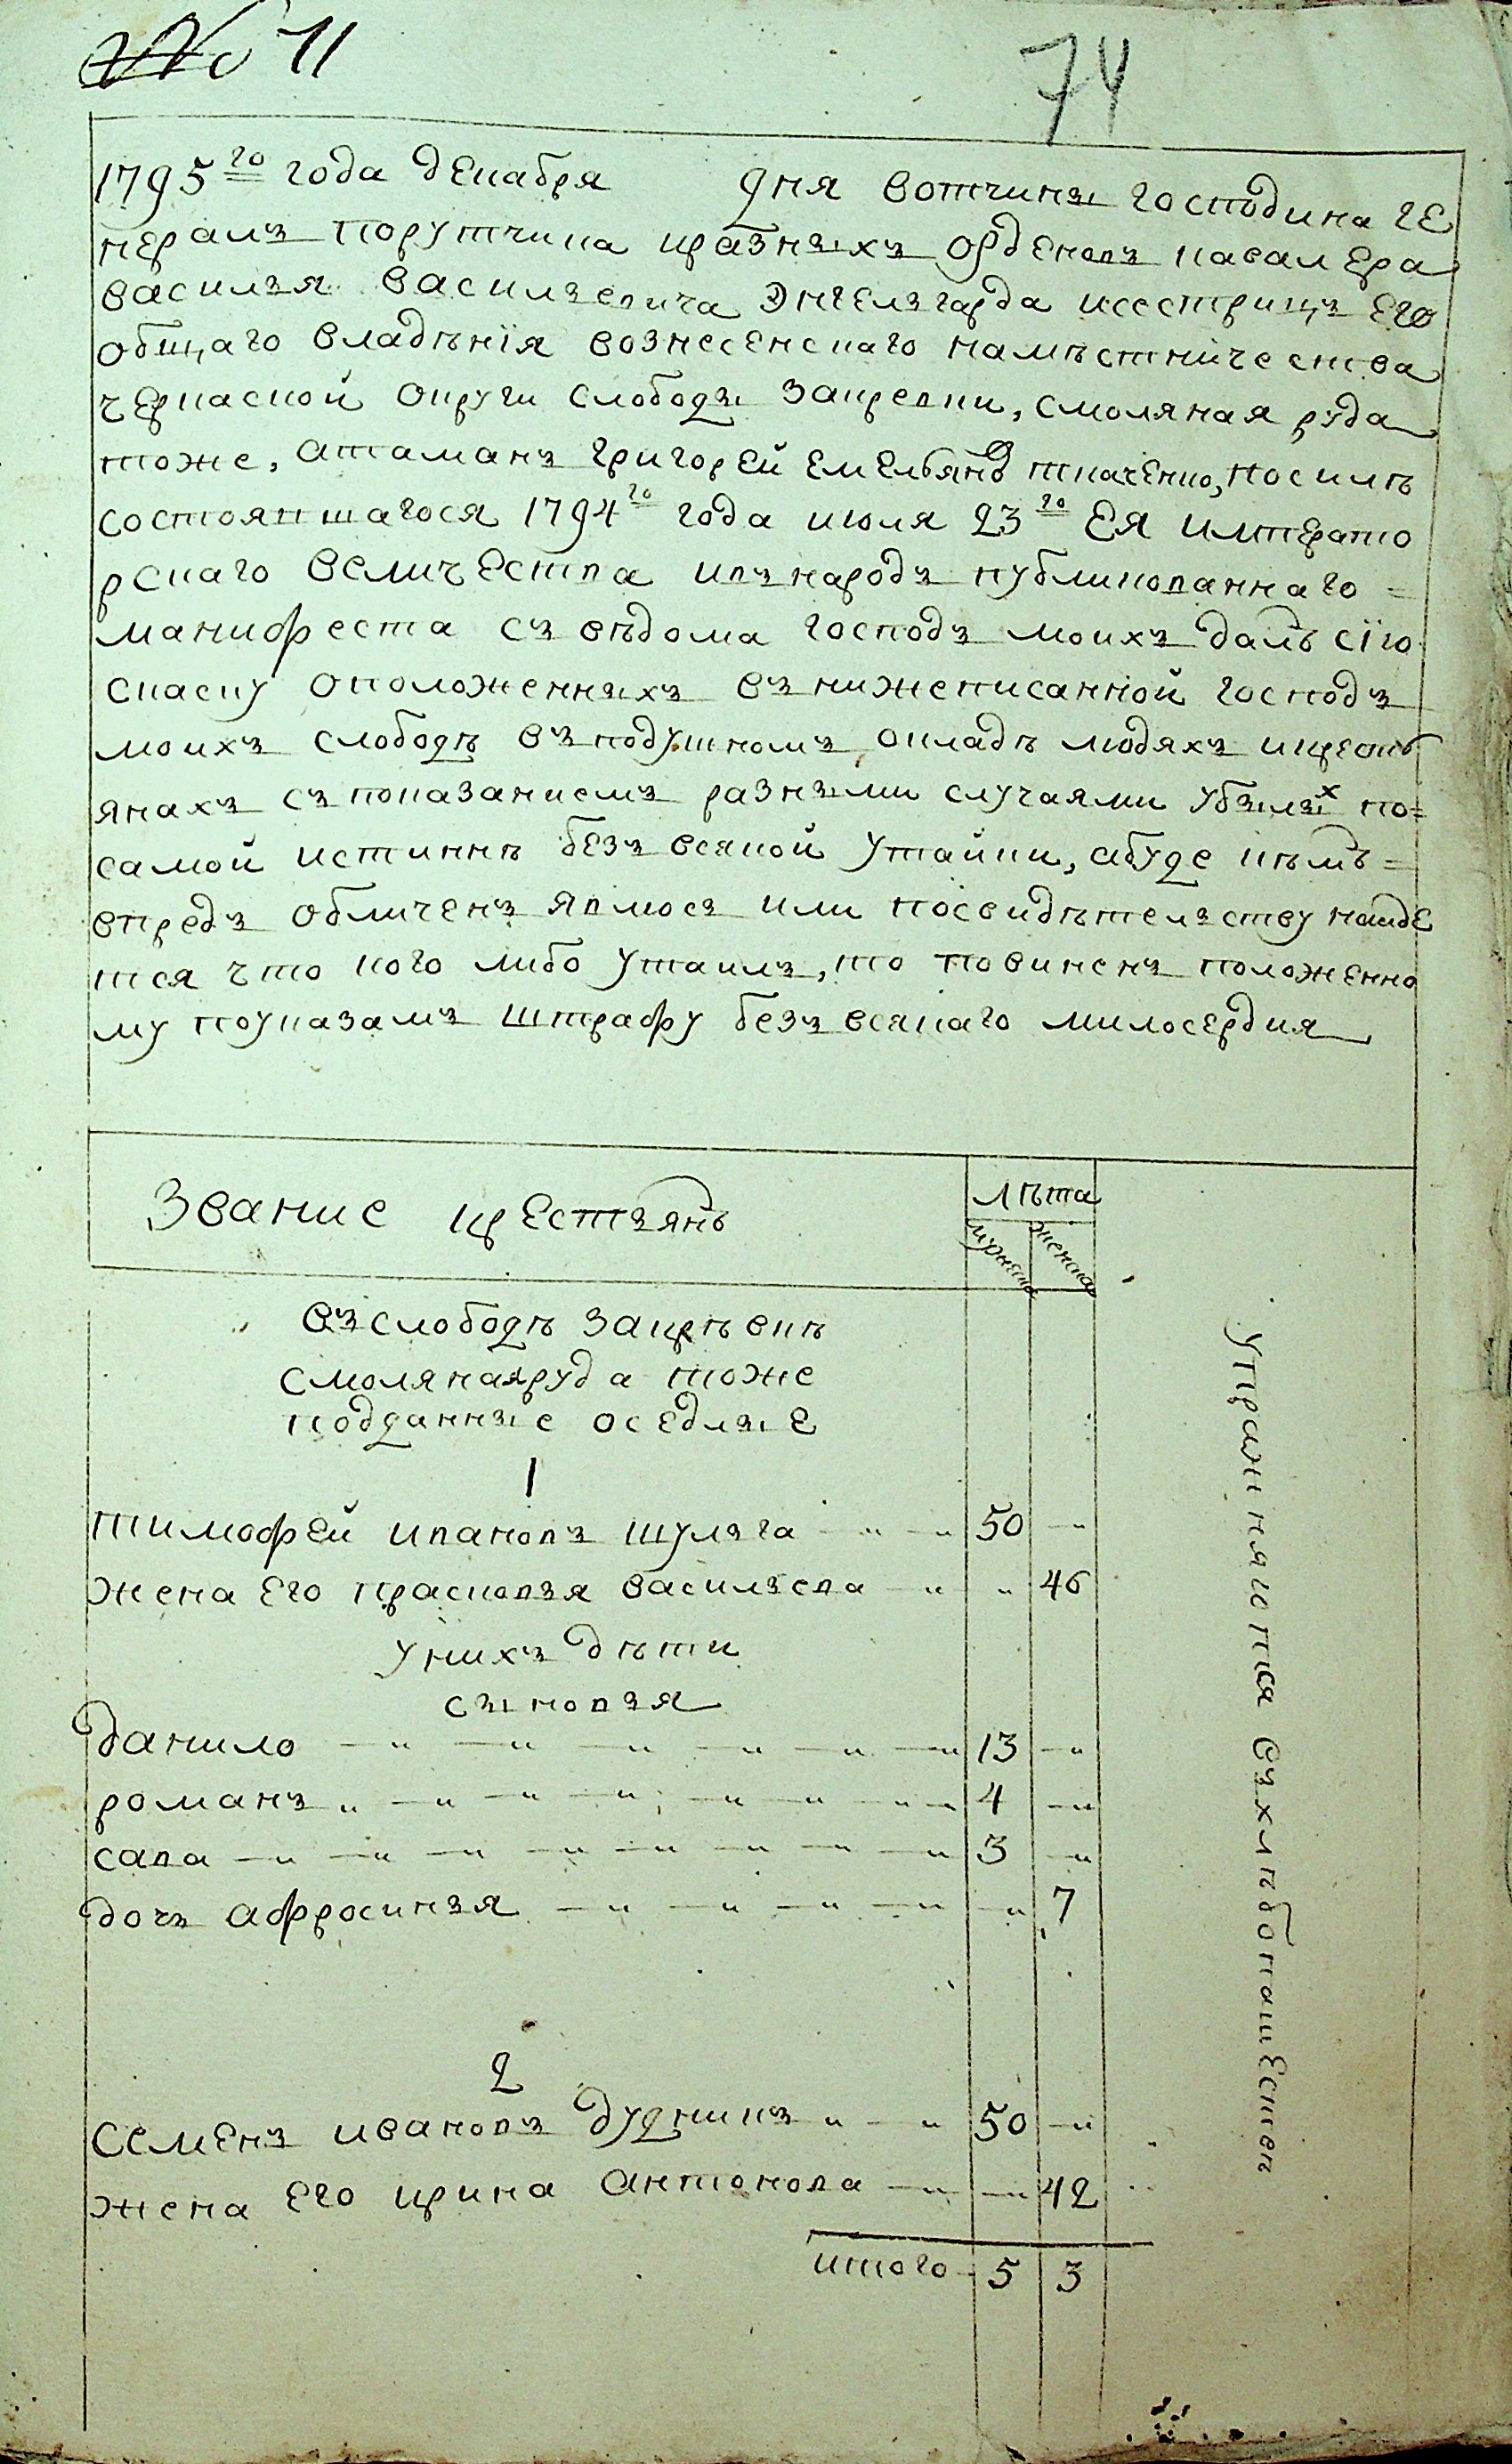 № 11
74
1795го года декабря дня вотчины господина ге
нералъ порутчика иразныхъ орденовъ кавалера
василья васильевича Энгельгарда исестрицъ его
общаго владѣнїя вознесенскаго намѣстничества
черкаской округи слободы закревки, смоляная руда
тоже, атаманъ григорей емельяновъ ткаченко, посилѣ
состоявшагося 1794го года июля 23го Ея императо
рскаго величества ивънародъ публикованнаго =
манифеста съ вѣдома господъ моихъ далъ сїю
скаску оположенныхъ въ нижеписанной господъ
моихъ слободѣ въ подушномъ окладѣ людяхъ икресть
янахъ съ показаниемъ разными случаями убылых по=
самой истиннѣ безъ всякой утайки, абуде кѣмъ =
впредь обличенъ явлюсь или посвидѣтельству найде
тся что кого либо утаилъ, то повиненъ положенно
му поуказамъ штрафу безъ всякаго милосердия
Звание крестьянъ
лѣта
мужеска
женска
въ слободѣ закрѣвкѣ
смолянаяруда тоже
подданные оседлые
1
тимофей ивановъ шуляга 50
жена его прасковья васильева 46
у нихъ дѣти
сыновья
данило 13
романъ 4
сава 3
дочь афросинья 7
2
семенъ ивановъ дудникъ 50
жена его ирина антонова 42
итого 5 3
упражняются въ хлѣбопашествѣ